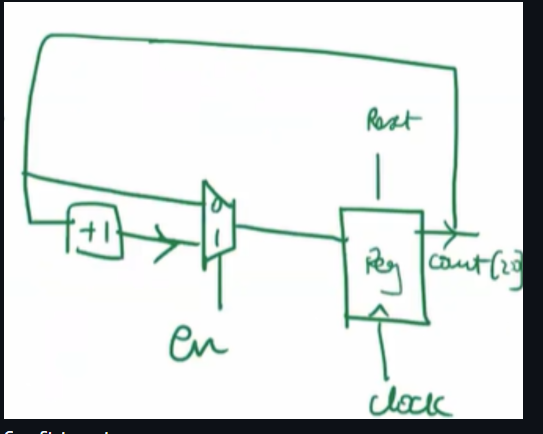 Reset
0
+1
1
Reg
count[2:0]
en
clock